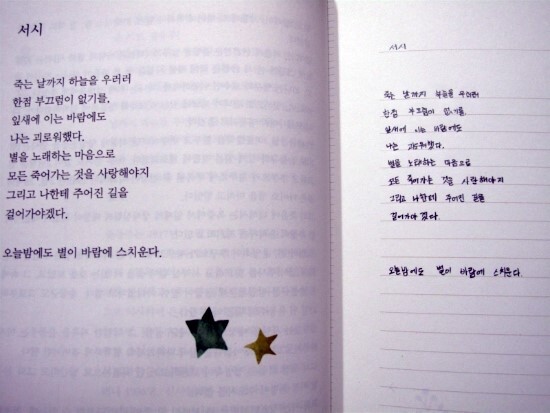 서시
죽는 날까지 하늘을 우러러
한점 부끄럼이 없기를,
잎새에 이는 바람에도
나는 괴로워했다.
별을 노래하는 마음으로
모든 죽어가는 것을 사랑해야지
그리고 나한테 주어진 길을
걸어가야겠다.
오늘밤에도 별이 바람에 스치운다.
서시
죽는 날까지 하늘을 우러러
한점 부끄럼이 없기를,
잎새에 이는 바람에도
나는 괴로워했다.
별을 노래하는 마음으로
모든 죽어가는 것을 사랑해야지
그리고 나한테 주어진 길을
걸어가야겠다.
오늘밤에도 별이 바람에 스치운다.